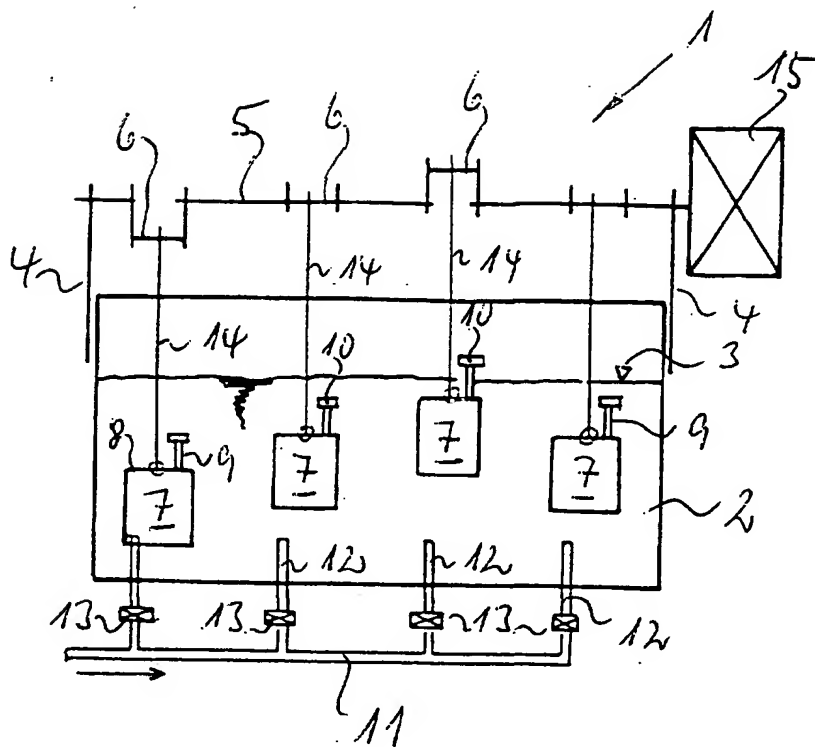 1
15
6
5
6
6
4
14
14
14
4
10
10
3
8
9
7
7
7
7
9
2
12
12
13
13
13
12
11